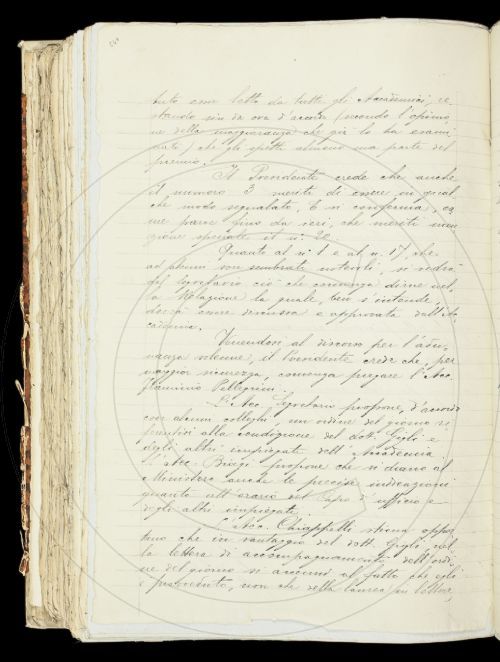 tuto esser letto da tutti gli Accademici, re-
stando sin da ora d'accordo (secondo l'opinio-
ne della maggioranza che già lo ha esami-
nato) che gli spetti almeno una parte del
premio.
Il Presidente crede che anche
il numero 3 meriti di essere in qual-
che modo segnalato. E si conferma, co-
me parve fino da ieri, che meriti men-
zione speciale il n. 20.
Quanto al n. 1 e al n. 17, che
ad alcuni son sembrati notevoli, si vedrà
dal Segretario ciò che convenga dirne nel-
la Relazione la quale, ben s'intende,
dovrà essere discussa e approvata dall'Ac-
cademia.
Venendosi al discorso per l'adu-
nanza solenne, il Presidente crede che, per
maggior sicurezza, convenga pregare l'Acc.
Flaminio Pellegrini.
L'Acc. Segretario propone, d'accordo
con alcuni colleghi, un ordine del giorno re-
lativo alla condizione del dott. Gigli e
degli altri impiegati dell'Accademia.
L'Acc. Biagi propone che si diano al
Ministero anche le precise indicazioni
quanto all'orario del Capo d'ufficio e
degli altri impiegati.
L'Acc. Chiappelli stima oppor-
tuno che in vantaggio del dott. Gigli, nel-
la lettera di accompagnamento dell'ordi-
ne del giorno si accenni al fatto che egli
è provveduto, non che della laurea in lettere,